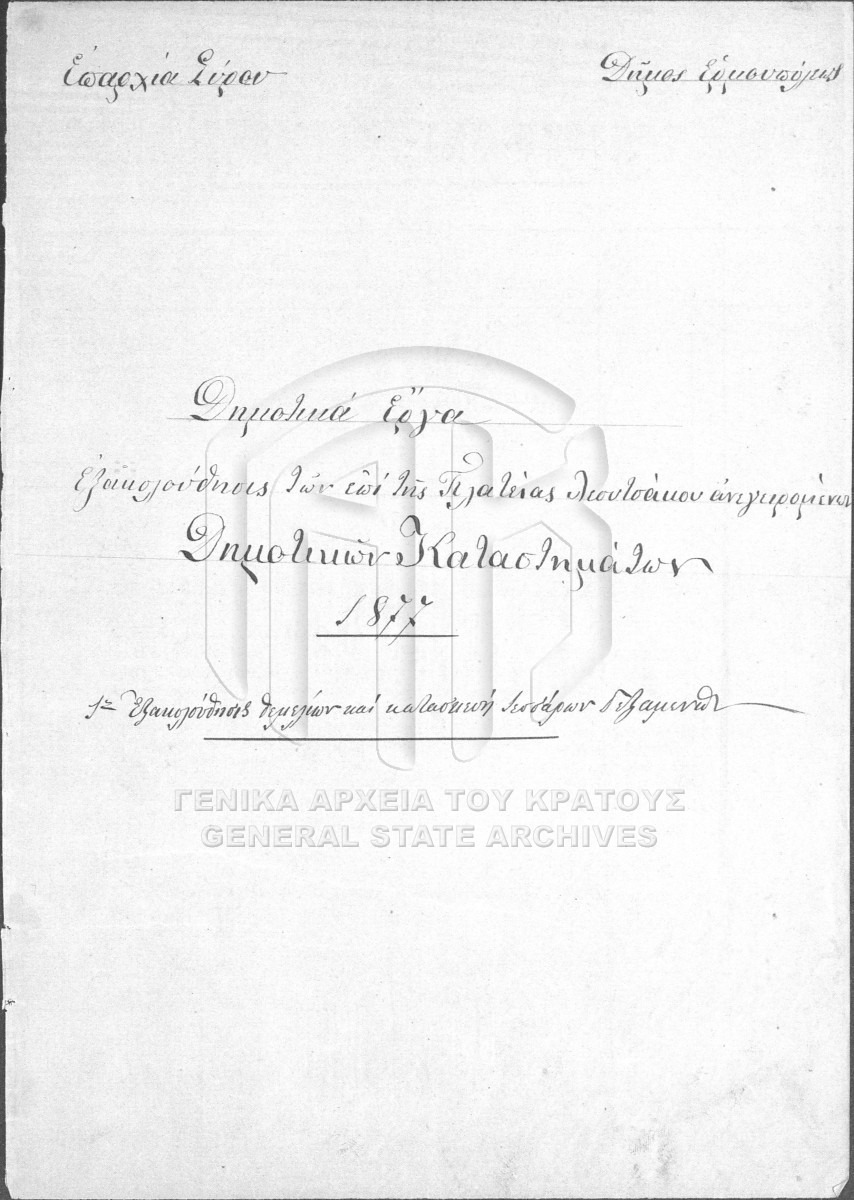 Ἐπαρχία Σύρου
Δῆμος Ἑρμουπόλεως
Δημοτικά Ἔργα
Ἐξακολούθησις τῶν ἐπί τῆς Πλατείας Λεουτσάκου ἀνεγειρομένων
Δημοτικῶν Καταστημάτων
1877
Ἐξακολούθησις θεμελίων καί κατασκευή τεσσάρων δεξαμενῶν
ΓΕΝΙΚΑ ΑΡΧΕΙΑ ΤΟΥ ΚΡΑΤΟΥΣ
GENERAL STATE ARCHIVES